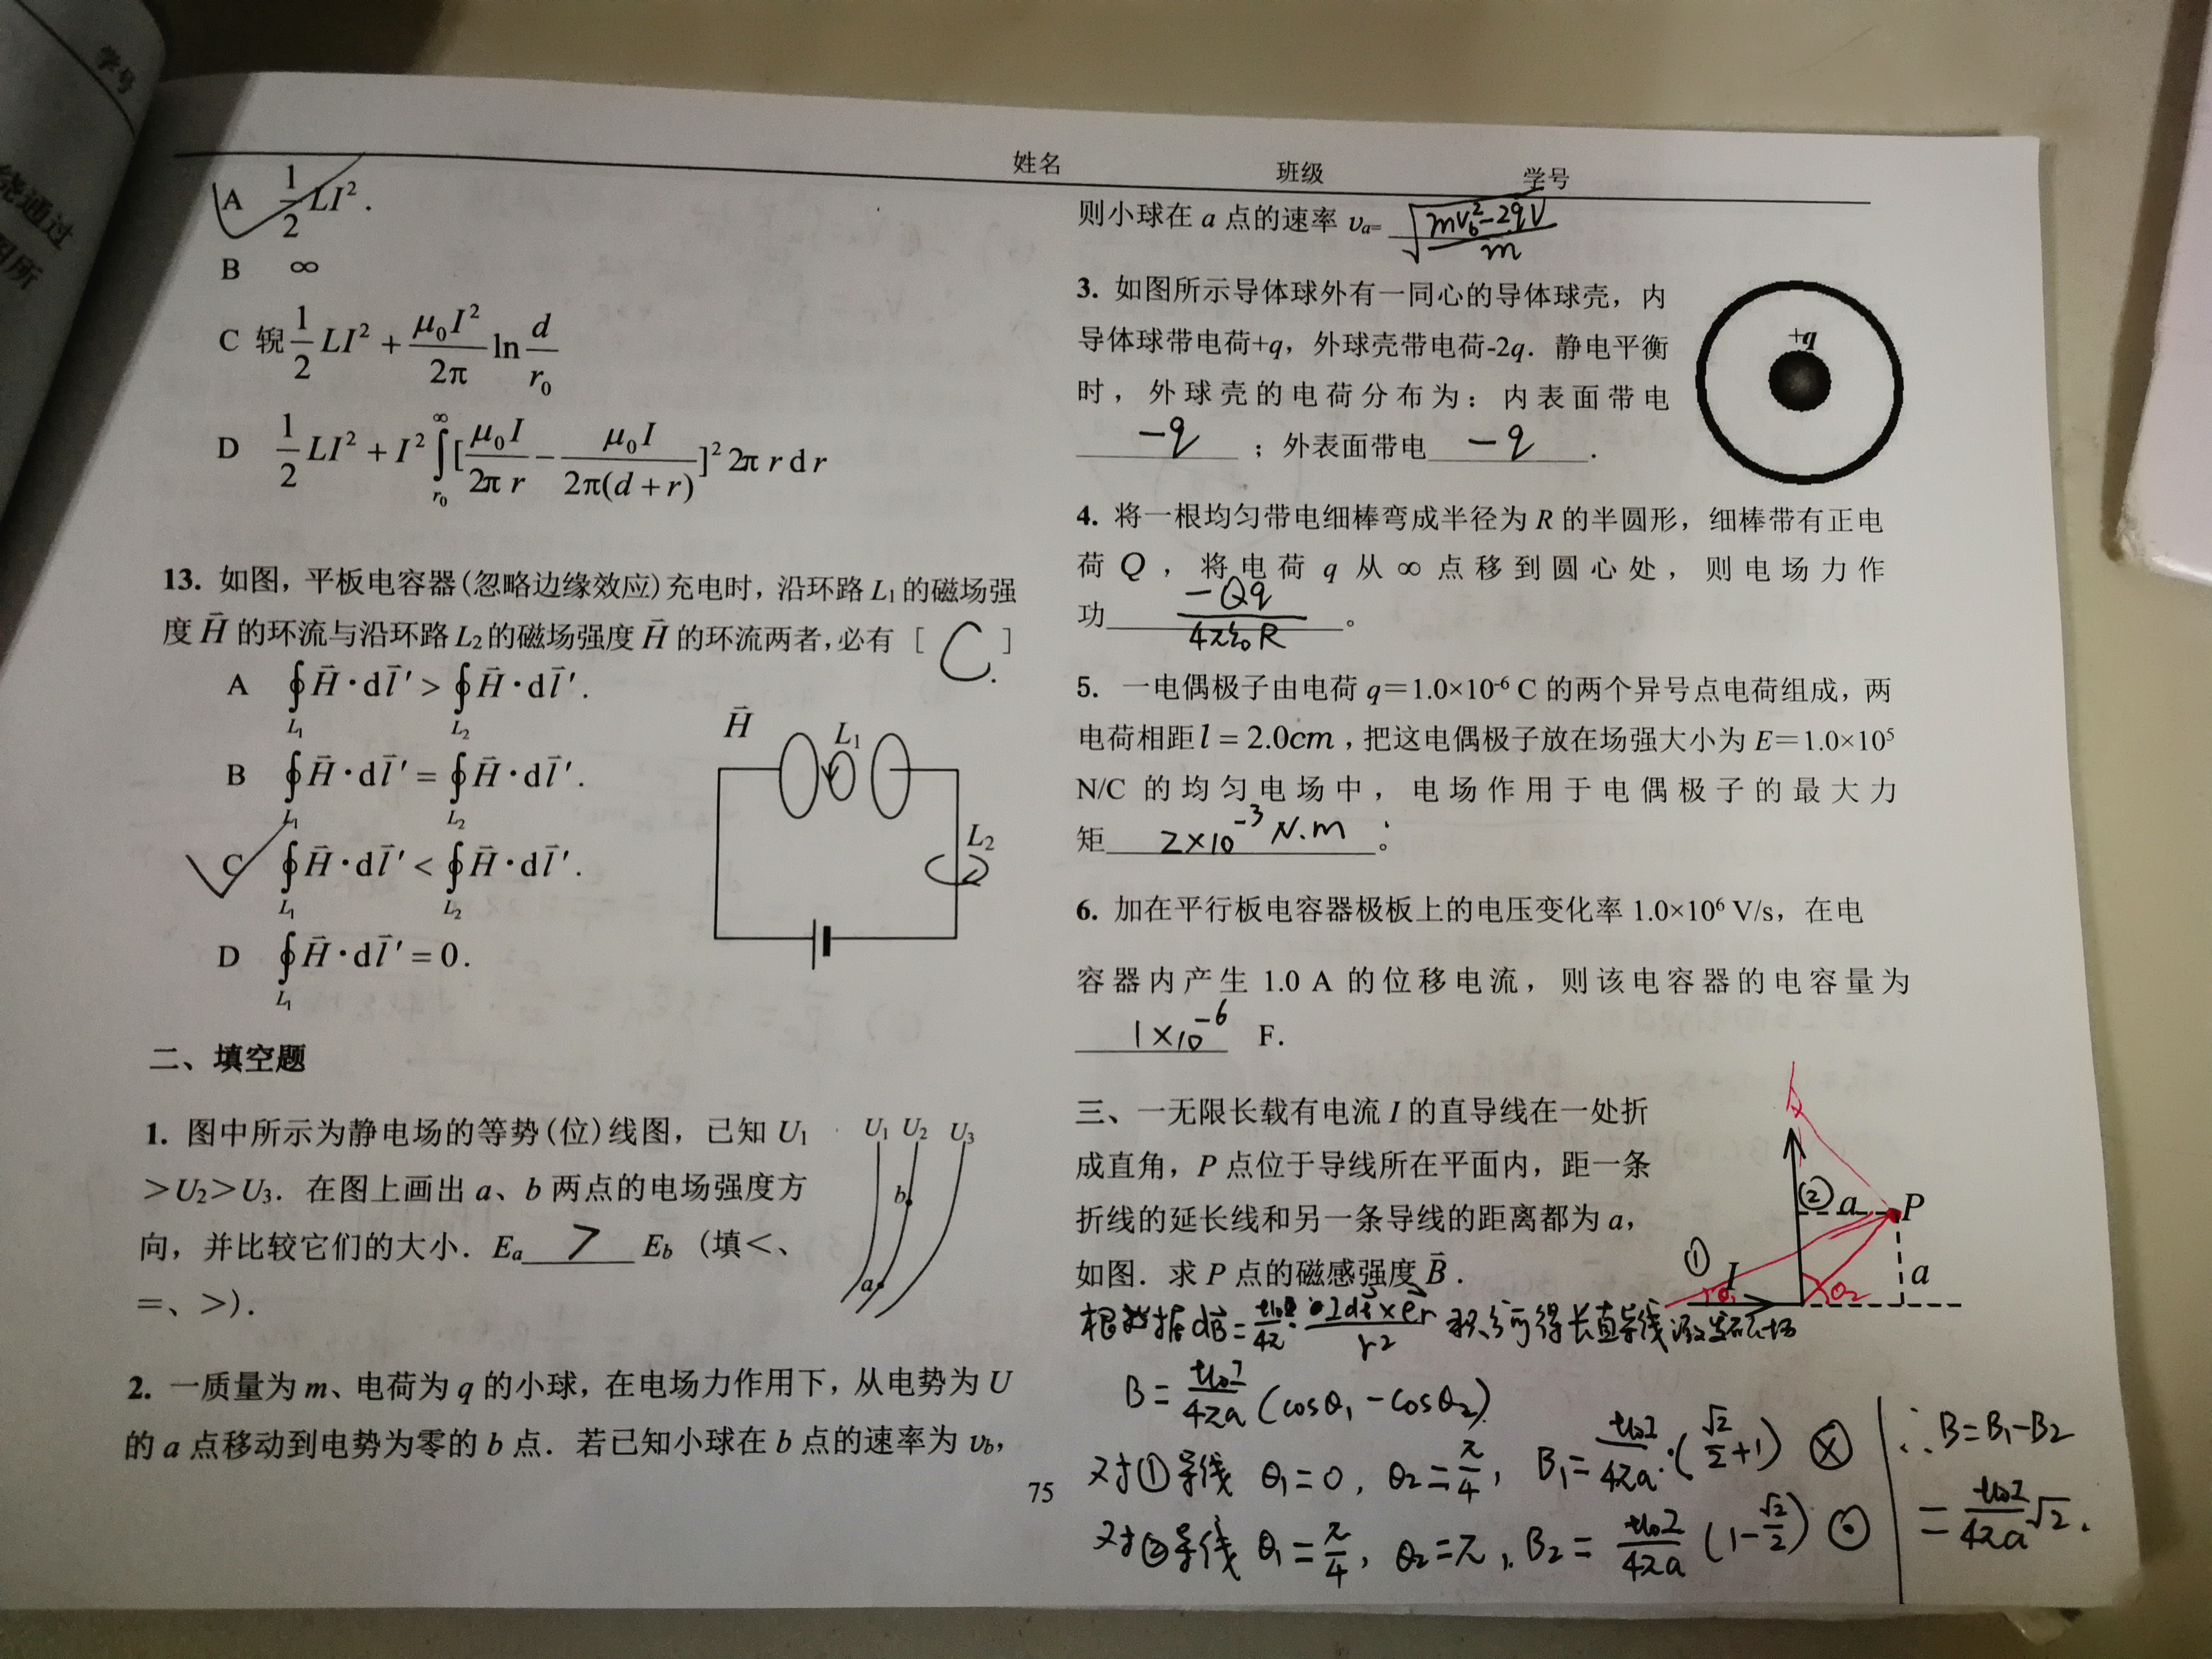 学号
绕通过
图所
姓名 班级 学号
A $\frac{1}{2}LI^2$.
B ∞
C 锐 $\frac{1}{2}LI^2+\frac{\mu_0I^2}{2\pi}\ln\frac{d}{r_0}$
D $\frac{1}{2}LI^2+I^2\int_{r_0}^{\infty}[\frac{\mu_0I}{2\pi r}-\frac{\mu_0I}{2\pi(d+r)}]^2 2\pi r\,\mathrm{d}r$
13. 如图，平板电容器(忽略边缘效应)充电时，沿环路L₁的磁场强
度 $\vec{H}$ 的环流与沿环路L₂的磁场强度 $\vec{H}$ 的环流两者，必有 [ C. ]
A $\oint_{L_1}\vec{H}\cdot\mathrm{d}\vec{l}'>\oint_{L_2}\vec{H}\cdot\mathrm{d}\vec{l}'$.
B $\oint_{L_1}\vec{H}\cdot\mathrm{d}\vec{l}'=\oint_{L_2}\vec{H}\cdot\mathrm{d}\vec{l}'$.
C $\oint_{L_1}\vec{H}\cdot\mathrm{d}\vec{l}'<\oint_{L_2}\vec{H}\cdot\mathrm{d}\vec{l}'$.
D $\oint_{L_1}\vec{H}\cdot\mathrm{d}\vec{l}'=0$.
$\vec{H}$ L₁
L₂
二、填空题
1. 图中所示为静电场的等势(位)线图，已知 U₁
>U₂>U₃．在图上画出 a、b 两点的电场强度方
向，并比较它们的大小．Eₐ > E_b (填<、
=、>)．
U₁ U₂ U₃
b
a
2. 一质量为 m、电荷为 q 的小球，在电场力作用下，从电势为 U
的 a 点移动到电势为零的 b 点．若已知小球在 b 点的速率为 υ_b，
则小球在 a 点的速率 υₐ= $\sqrt{\frac{mv_b^2-2qV}{m}}$
3. 如图所示导体球外有一同心的导体球壳，内
导体球带电荷+q，外球壳带电荷-2q．静电平衡
时，外球壳的电荷分布为：内表面带电
-q ；外表面带电 -q ．
+q
4. 将一根均匀带电细棒弯成半径为 R 的半圆形，细棒带有正电
荷 Q，将电荷 q 从∞点移到圆心处，则电场力作
功 $\frac{-Qq}{4\pi\varepsilon_0R}$ 。
5. 一电偶极子由电荷 q＝1.0×10⁻⁶ C 的两个异号点电荷组成，两
电荷相距 l = 2.0cm，把这电偶极子放在场强大小为 E＝1.0×10⁵
N/C 的均匀电场中，电场作用于电偶极子的最大力
矩 2×10⁻³ N.m 。
6. 加在平行板电容器极板上的电压变化率 1.0×10⁶ V/s，在电
容器内产生 1.0 A 的位移电流，则该电容器的电容量为
1×10⁻⁶ F.
三、一无限长载有电流 I 的直导线在一处折
成直角，P 点位于导线所在平面内，距一条
折线的延长线和另一条导线的距离都为 a，
如图．求 P 点的磁感强度 $\vec{B}$．
② a P
① I a
θ₁ θ₂
$B=\frac{\mu_0I}{4\pi a}(\cos\theta_1-\cos\theta_2)$
对①导线 θ₁=0, θ₂=$\frac{\pi}{4}$, $B_1=\frac{\mu_0I}{4\pi a}\cdot(\frac{\sqrt{2}}{2}+1)$ ⊗
对②导线 θ₁=$\frac{\pi}{4}$, θ₂=π, $B_2=\frac{\mu_0I}{4\pi a}(1-\frac{\sqrt{2}}{2})$ ⊙
∴B=B₁-B₂
$=\frac{\mu_0I}{4\pi a}\sqrt{2}$.
75